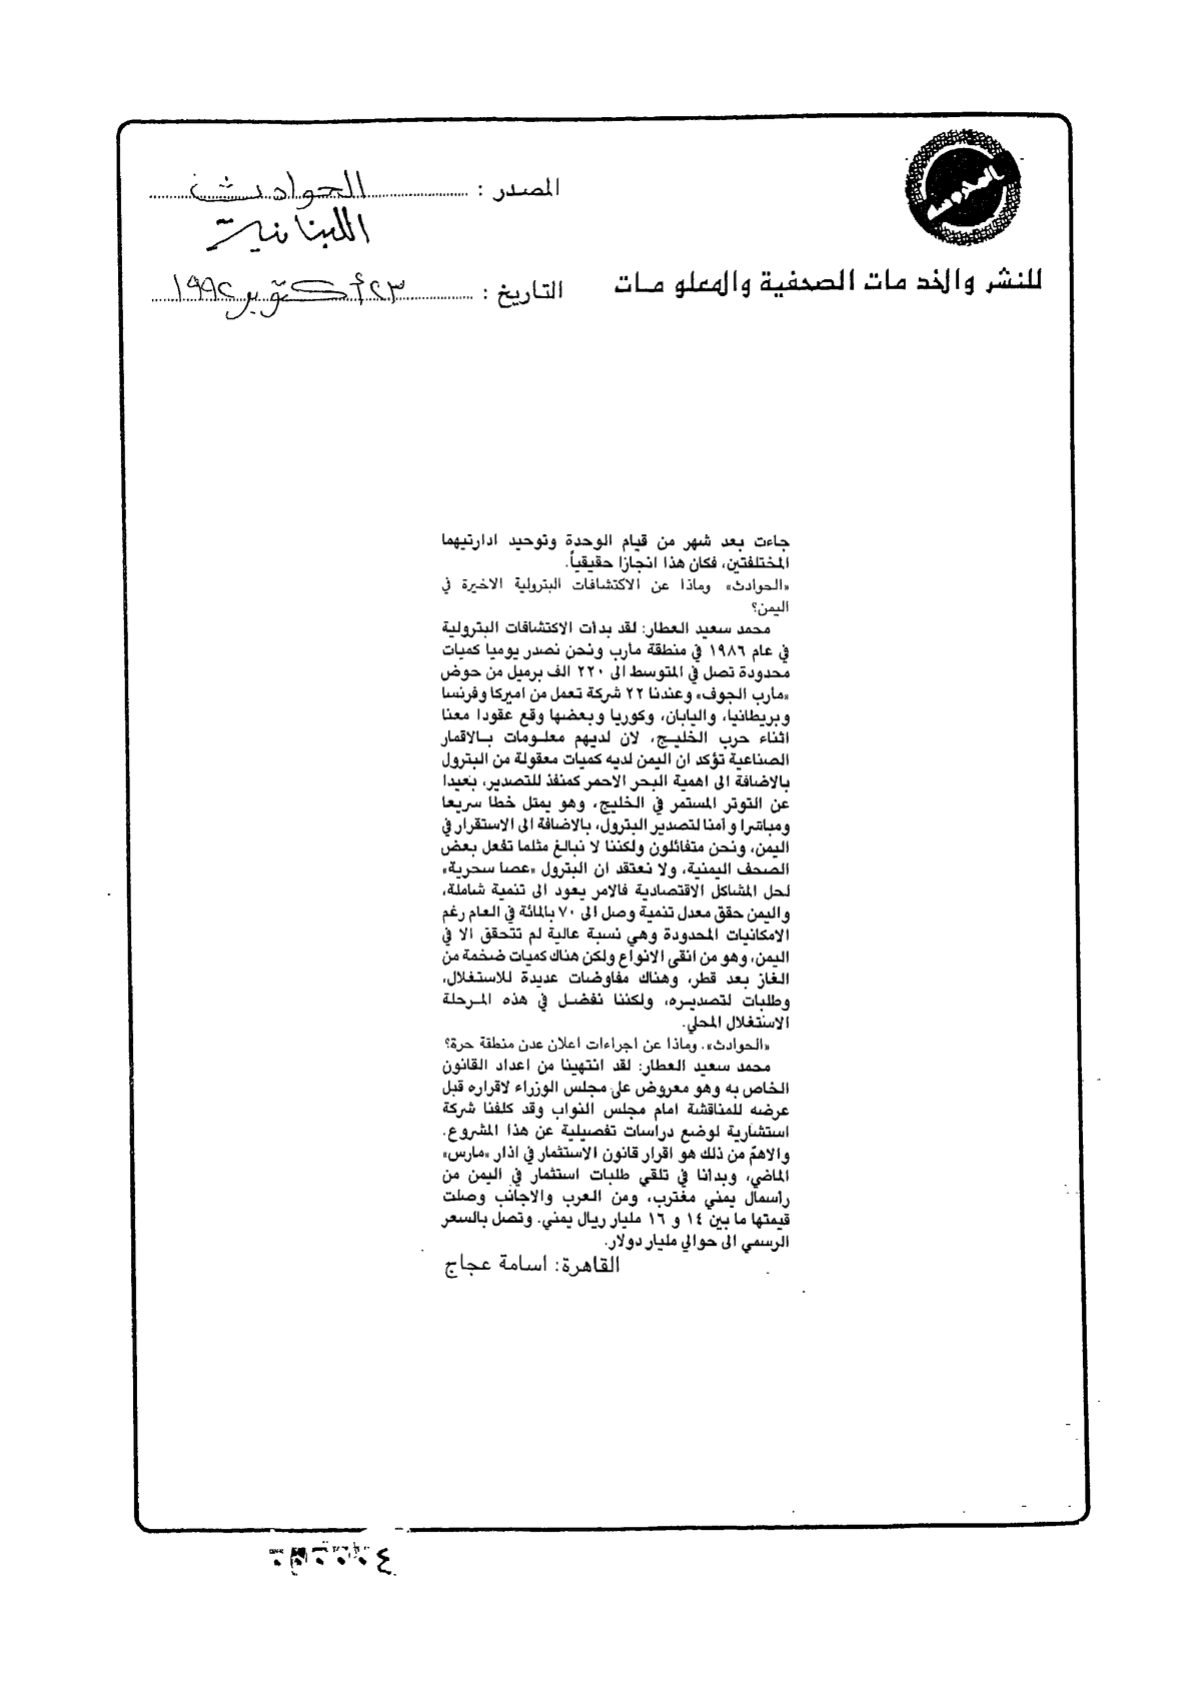 المصدر : الحوادث
اللبنانية
للنشر والخدمات الصحفية والمعلومات
التاريخ : ٢٣ أكتوبر ١٩٩٢
جاءت بعد شهر من قيام الوحدة وتوحيد ادارتيهما
المختلفتين، فكان هذا انجازا حقيقياً.
«الحوادث» وماذا عن الاكتشافات البترولية الاخيرة في
اليمن؟
محمد سعيد العطار: لقد بدأت الاكتشافات البترولية
في عام ١٩٨٦ في منطقة مارب ونحن نصدر يوميا كميات
محدودة تصل في المتوسط الى ٢٢٠ الف برميل من حوض
«مارب الجوف» وعندنا ٢٢ شركة تعمل من اميركا وفرنسا
وبريطانيا، واليابان، وكوريا وبعضها وقع عقودا معنا
اثناء حرب الخليج، لان لديهم معلومات بالاقمار
الصناعية تؤكد ان اليمن لديه كميات معقولة من البترول
بالاضافة الى اهمية البحر الاحمر كمنفذ للتصدير، بعيدا
عن التوتر المستمر في الخليج، وهو يمثل خطا سريعا
ومباشرا وأمنا لتصدير البترول، بالاضافة الى الاستقرار في
اليمن، ونحن متفائلون ولكننا لا نبالغ مثلما تفعل بعض
الصحف اليمنية، ولا نعتقد ان البترول «عصا سحرية»
لحل المشاكل الاقتصادية فالامر يعود الى تنمية شاملة،
واليمن حقق معدل تنمية وصل الى ٧٠ بالمائة في العام رغم
الامكانيات المحدودة وهي نسبة عالية لم تتحقق الا في
اليمن، وهو من انقى الانواع ولكن هناك كميات ضخمة من
الغاز بعد قطر، وهناك مفاوضات عديدة للاستغلال،
وطلبات لتصديره، ولكننا نفضل في هذه المرحلة
الاستغلال المحلي.
«الحوادث». وماذا عن اجراءات اعلان عدن منطقة حرة؟
محمد سعيد العطار: لقد انتهينا من اعداد القانون
الخاص به وهو معروض على مجلس الوزراء لاقراره قبل
عرضه للمناقشة امام مجلس النواب وقد كلفنا شركة
استشارية لوضع دراسات تفصيلية عن هذا المشروع.
والاهمّ من ذلك هو اقرار قانون الاستثمار في اذار «مارس»
الماضي، وبدانا في تلقي طلبات استثمار في اليمن من
رأسمال يمني مغترب، ومن العرب والاجانب وصلت
قيمتها ما بين ١٤ و ١٦ مليار ريال يمني. وتصل بالسعر
الرسمي الى حوالي مليار دولار.
القاهرة: اسامة عجاج